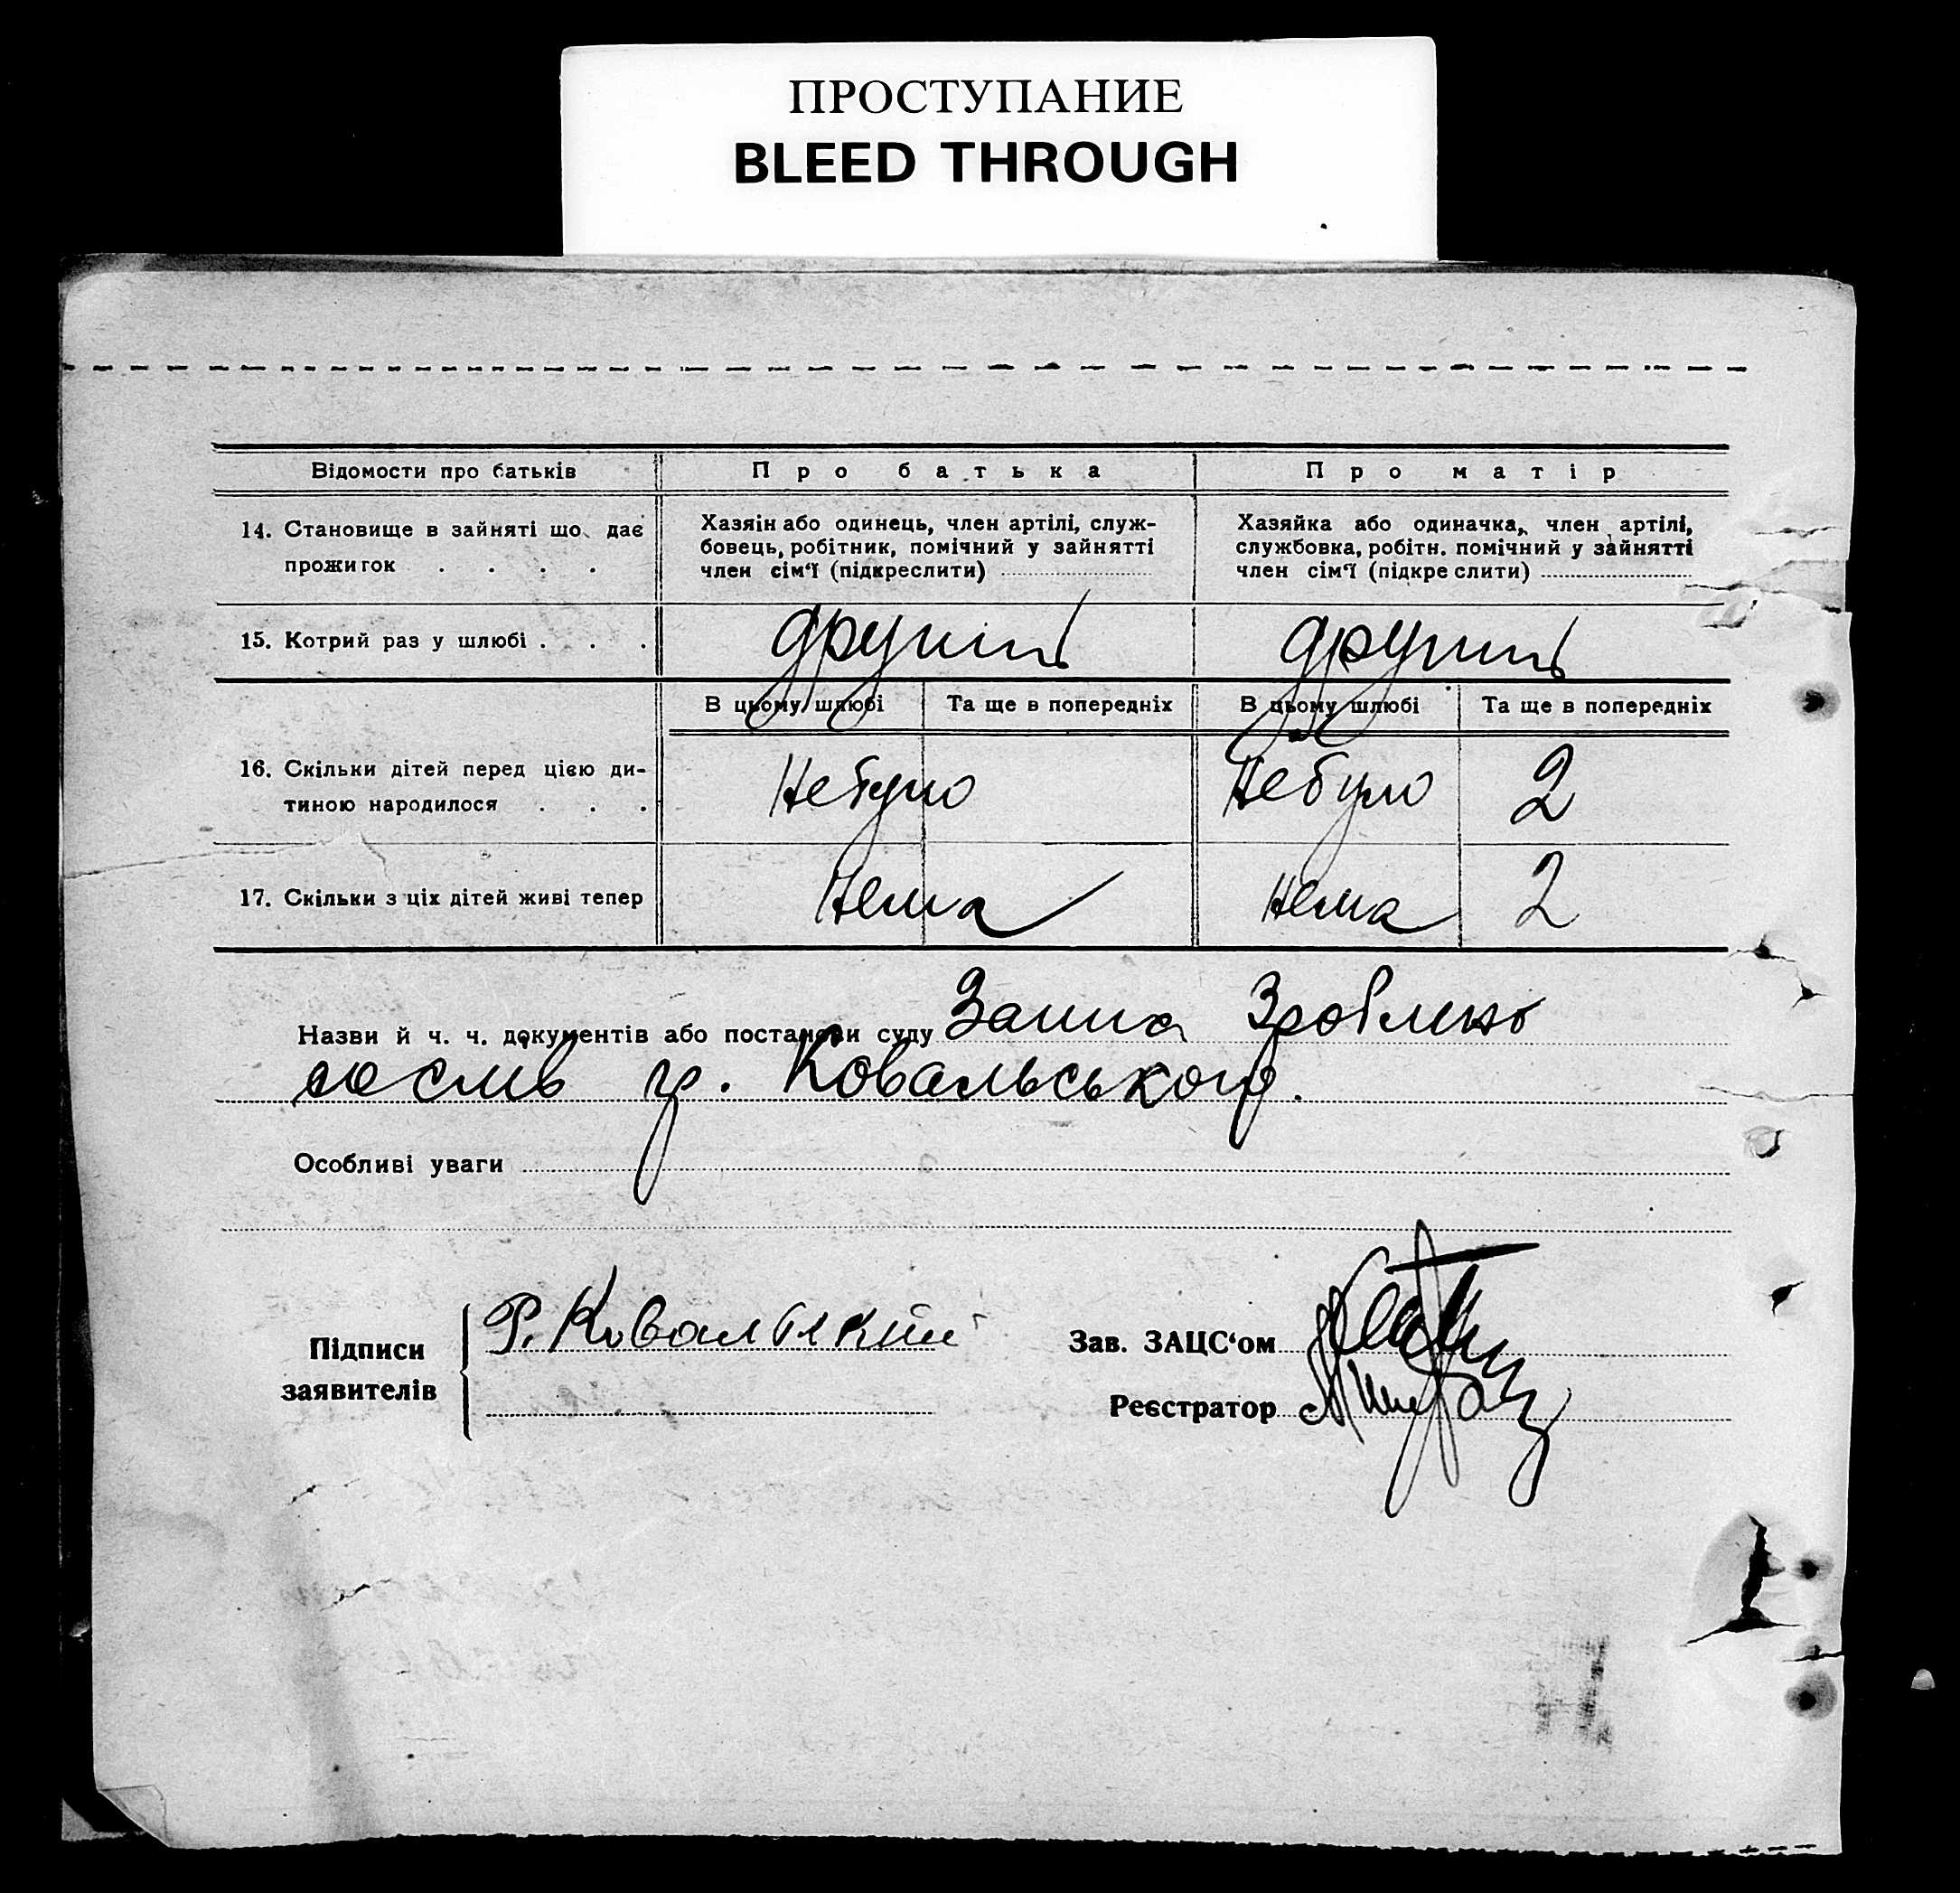 ПРОСТУПАНИЕ
BLEED THROUGH
Відомости про батьків
Про батька
Про матір
14. Становище в зайняті що дає прожиток . . . .
Хазяїн або одинець, член артілі, служ-
бовець, робітник, помічний у зайнятті
член сім‘ї (підкреслити)
Хазяйка або одиначка, член артілі,
службовка, робітн. помічний у зайнятті
член сім‘ї (підкреслити)
15. Котрий раз у шлюбі . . .
другий
другий
В цьому шлюбі
Та ще в попередніх
В цьому шлюбі
Та ще в попередніх
16. Скільки дітей перед цією ди-
тиною народилося . . .
Небуло
Небуло
2
17. Скільки з ціх дітей живі тепер
Нема
Нема
2
Назви й ч. ч. документів або постанови суду Запис Зроблено
гр. Ковальського.
Особливі уваги
Підписи
заявителів
Р. Ковальский
Зав. ЗАЦС‘ом
Реєстратор